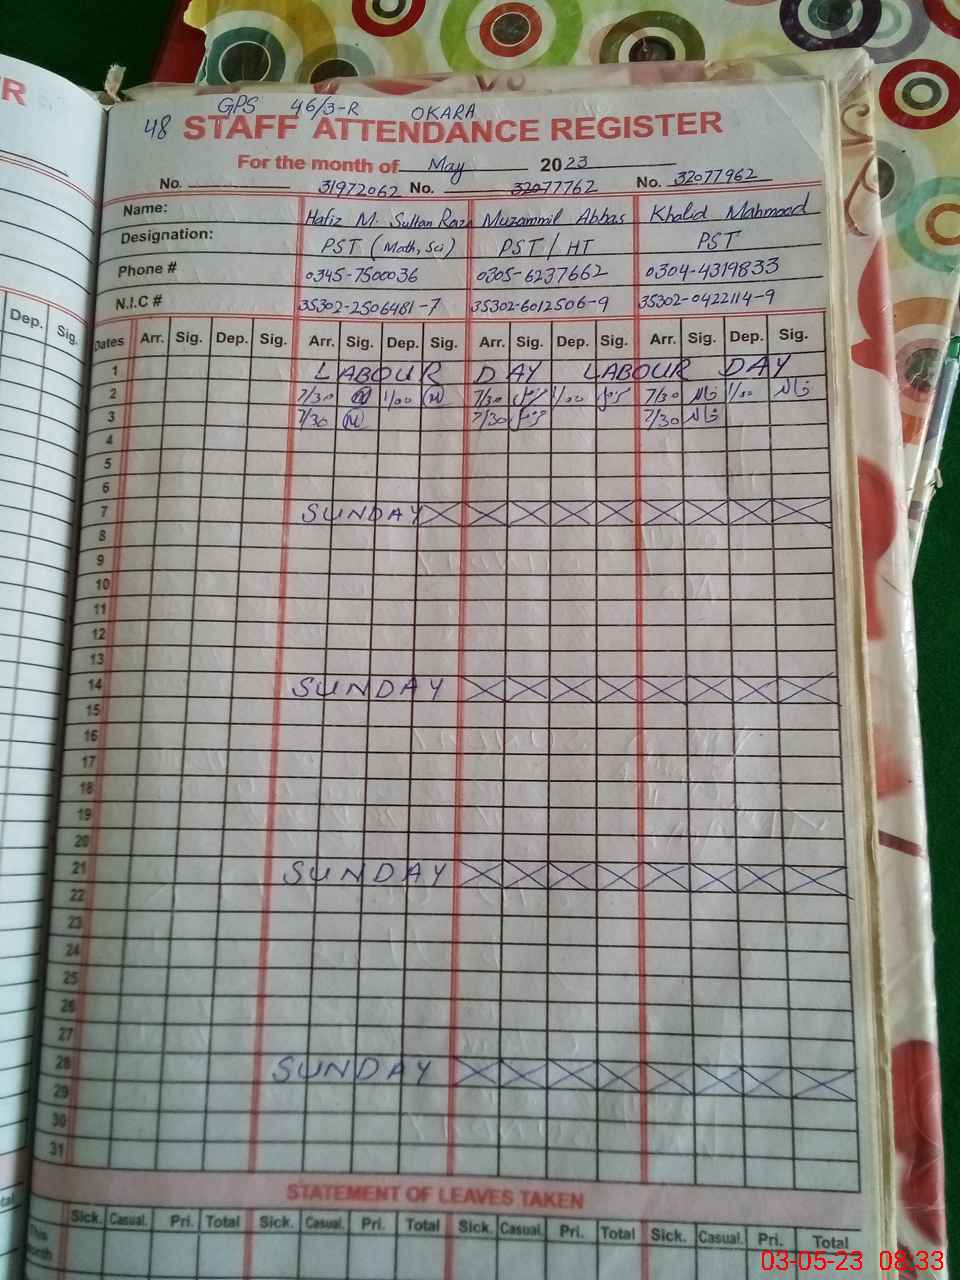 R
GPS 46/3-R OKARA
48 STAFF ATTENDANCE REGISTER
For the month of May 2023
No. 31972062 No. 32077762 No. 32077962
Name: Hafiz M. Sultan Raza Muzammil Abbas Khalid Mahmood
Designation: PST (Math, Sci) PST / HT PST
Phone # 0345-7500036 0305-6237662 0304-4319833
N.I.C # 35302-2506481-7 35302-6012506-9 35302-0422114-9
Dep. Sig.
Dates Arr. Sig. Dep. Sig. Arr. Sig. Dep. Sig. Arr. Sig. Dep. Sig. Arr. Sig. Dep. Sig.
1 LABOUR DAY LABOUR DAY
2 7/30 1/00 7/30 1/00 7/30 خالد 1/00 خالد
3 7/30 7/30 7/30 خالد
4
5
6
7 SUNDAY
8
9
10
11
12
13
14 SUNDAY
15
16
17
18
19
20
21 SUNDAY
22
23
24
25
26
27
28 SUNDAY
29
30
31
STATEMENT OF LEAVES TAKEN
Sick. Casual. Pri. Total Sick. Casual. Pri. Total Sick. Casual. Pri. Total Sick. Casual. Pri. Total
This Month
03-05-23 08:33